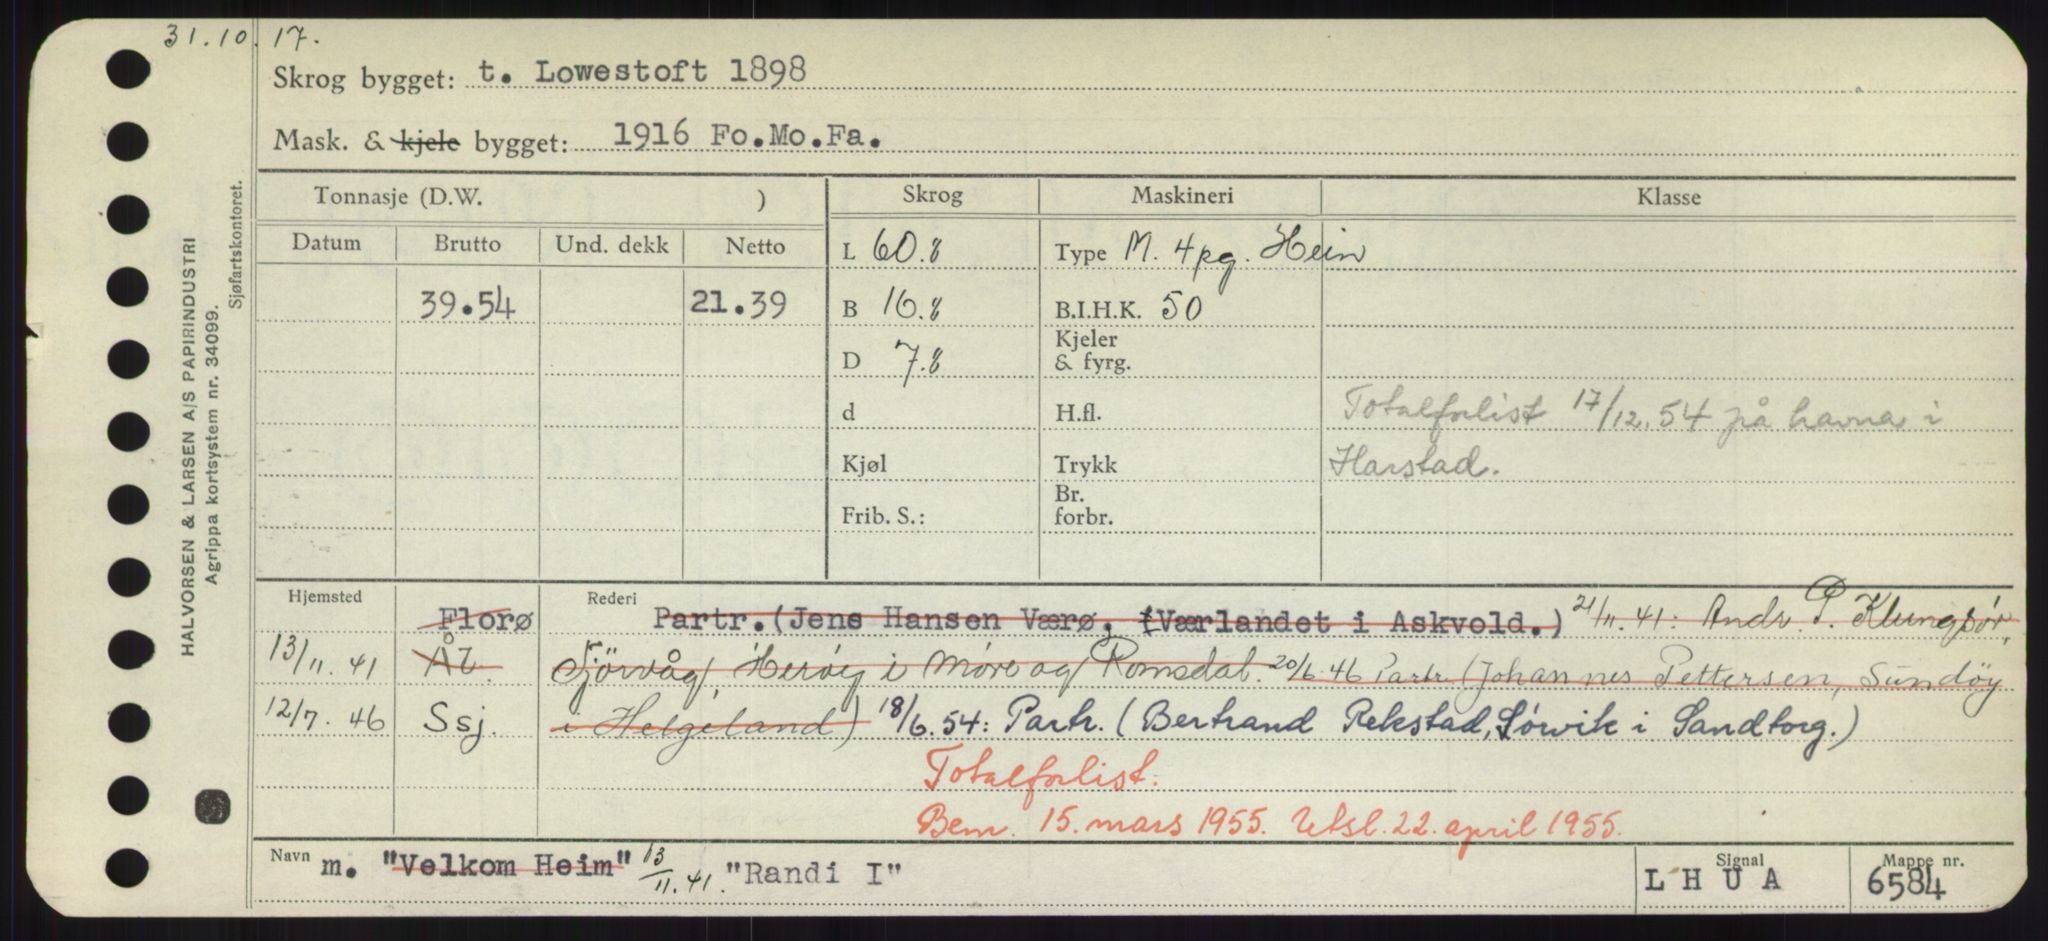 31.10.17.
Skrog bygget: t. Lowestoft 1898
Mask. & kjele bygget: 1916 Fo.Mo.Fa.
HALVORSEN & LARSEN A/S PAPIRINDUSTRI
Agrippa kortsystem nr. 34099.
Sjøfartskontoret.
Tonnasje (D.W. ) Skrog Maskineri Klasse
Datum Brutto Und. dekk Netto L 60.8 Type M. 4pg. Hein
39.54 21.39 B 16.8 B.I.H.K. 50
D 7.8 Kjeler & fyrg.
d H.fl. Totalforlist 17/12.54 på havna i
Kjøl Trykk Harstad.
Frib. S.: Br. forbr.
Hjemsted Florø Rederi Partr.(Jens Hansen Værø, (Værlandet i Askvold.) 21/11.41: Andr. P. Klungsör,
13/11.41 Ål. Sjörvåg, Heröy i Möre og Romsdal. 20/6.46 Partr. (Johannes Pettersen, Sundöy
12/7.46 Ssj. i Helgeland) 18/6.54: Partr. (Bertrand Rekstad, Sørvik i Sandtorg.)
Totalforlist.
Bem. 15. mars 1955. Utsl. 22. april 1955.
Navn m. "Velkom Heim" 13/11.41. "Randi I" Signal L H U A Mappe nr. 6584